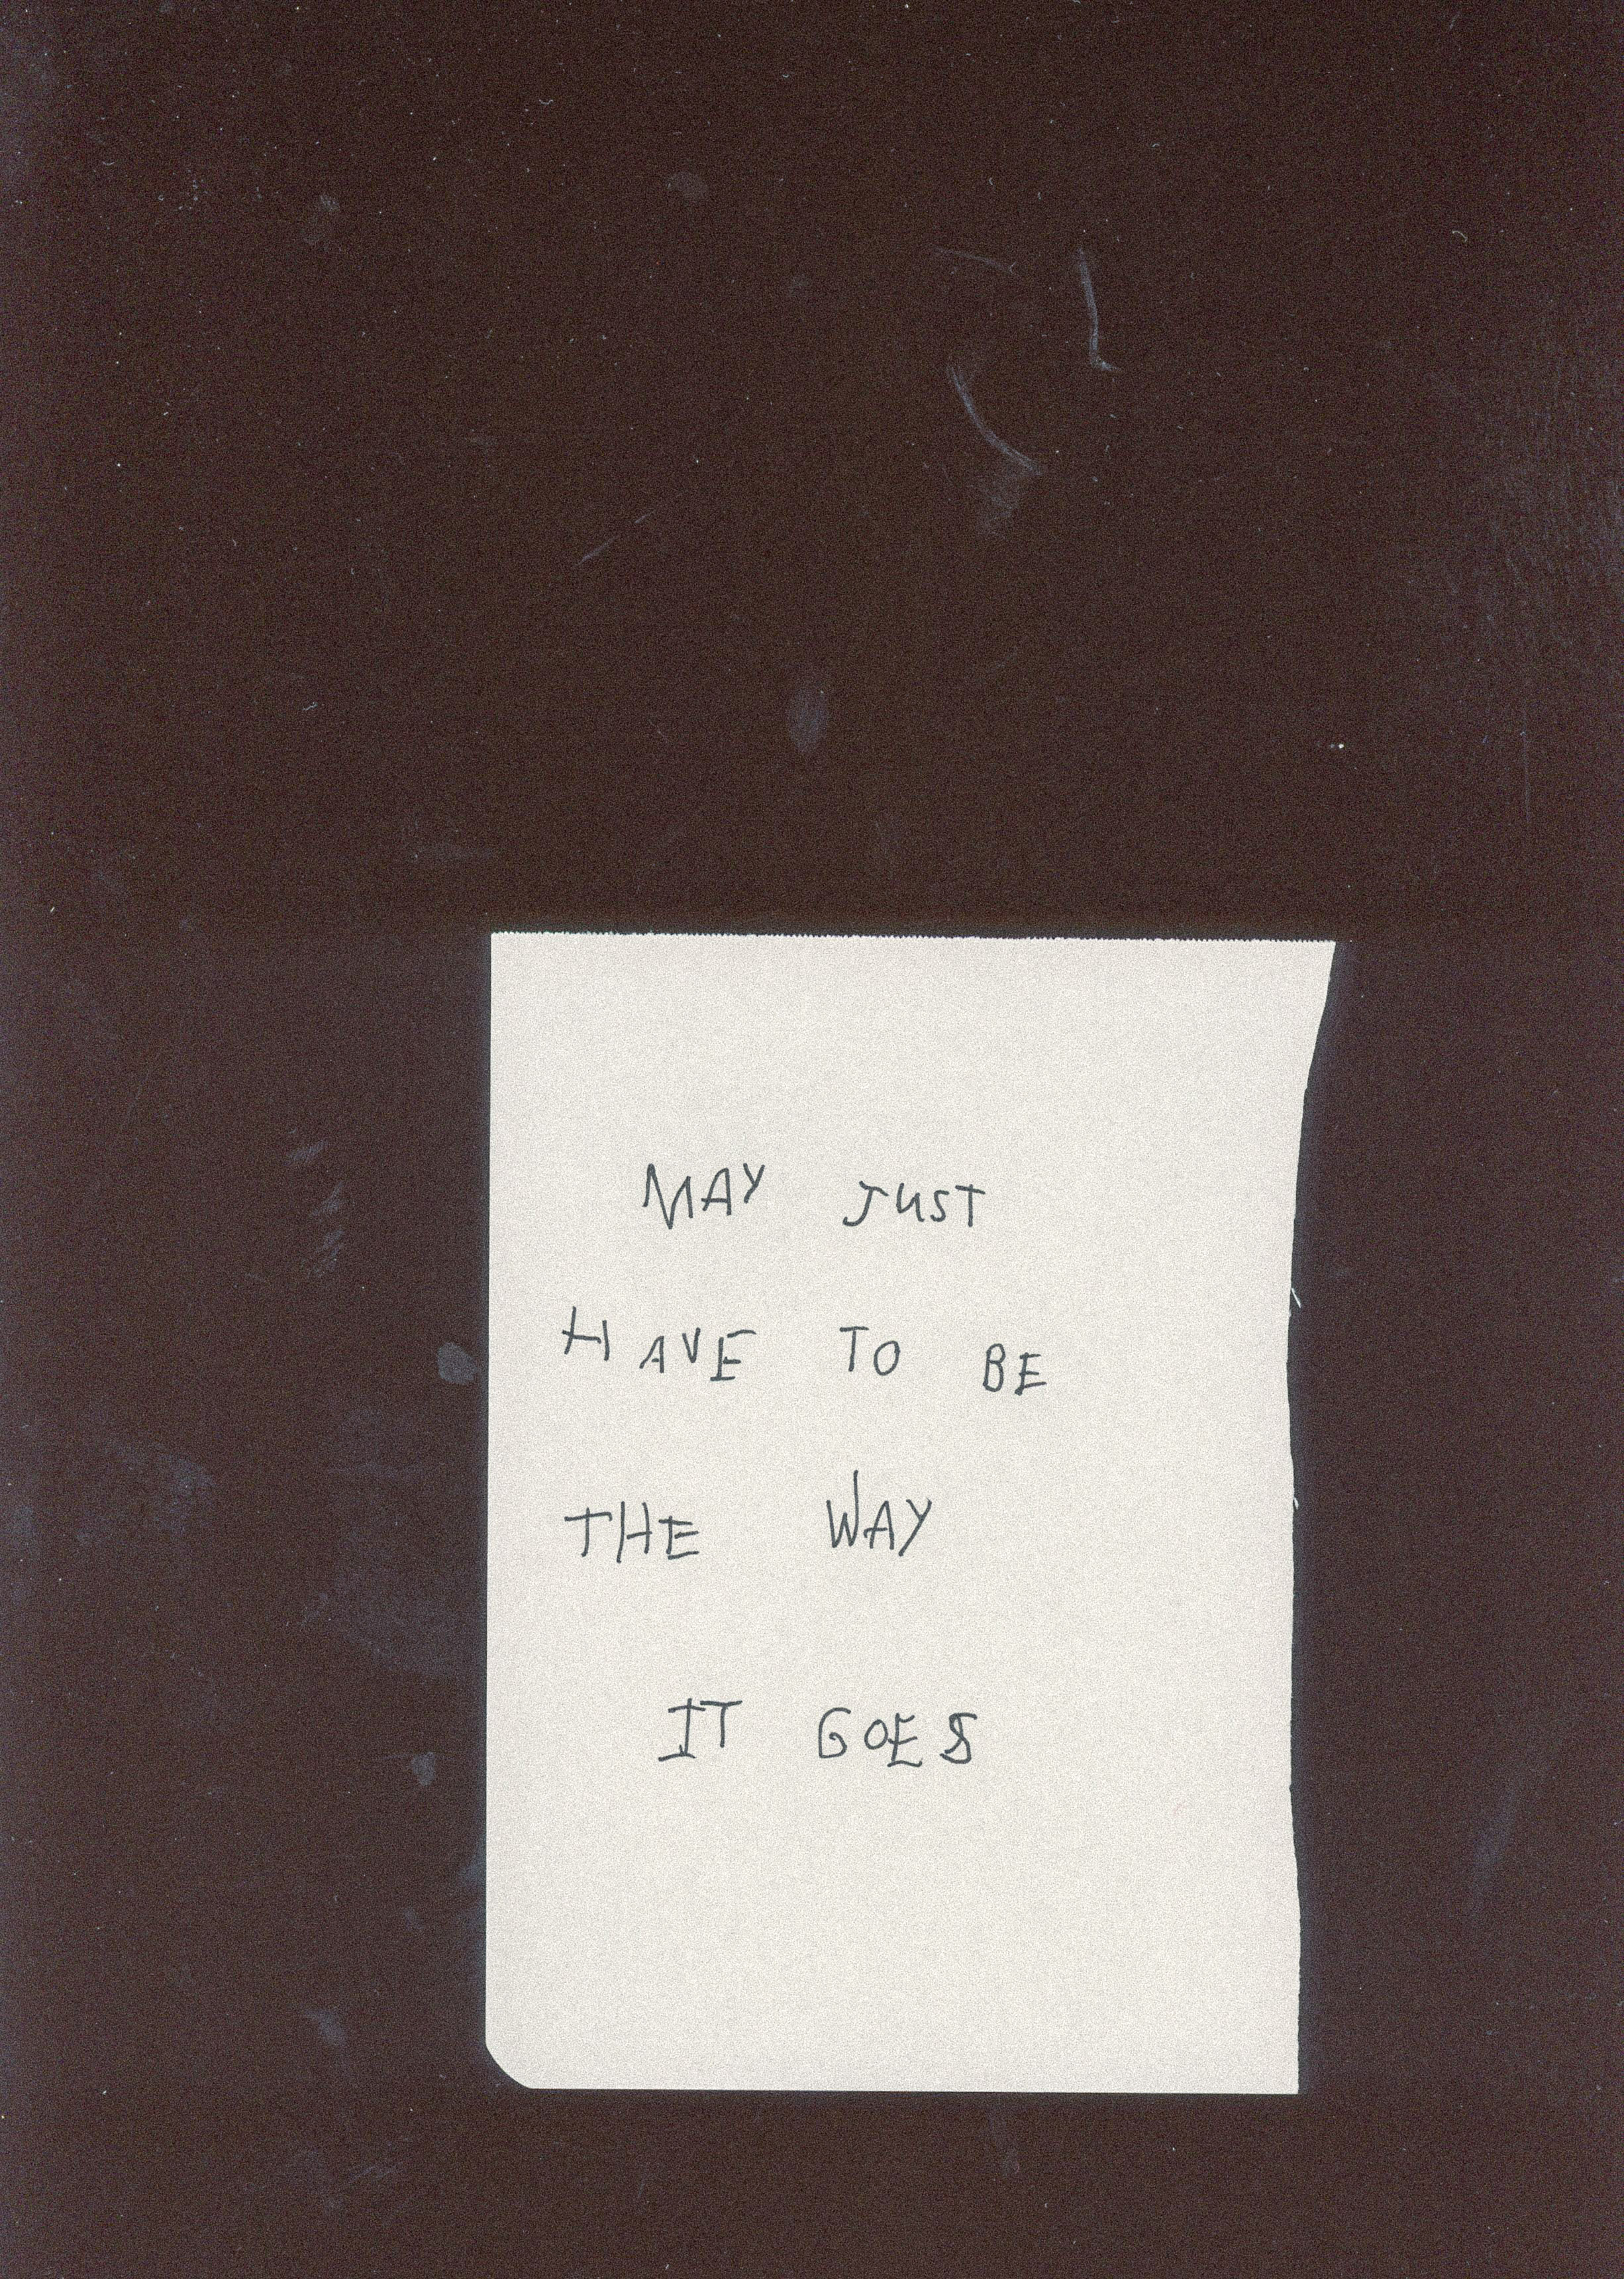 MAY JUST
HAVE TO BE
THE WAY
IT GOES